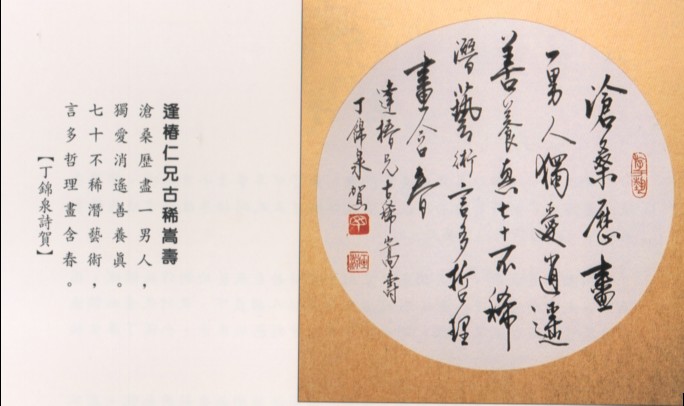 滄桑歷盡
一男人獨愛逍遙
善養真七十不稀
潛藝術言多哲理
畫含春
逢椿兄古稀嵩壽
丁錦泉賀
逢椿仁兄古稀嵩壽
滄桑歷盡一男人，
獨愛消遙善養眞。
七十不稀潛藝術，
言多哲理畫含春。
【丁錦泉詩賀】